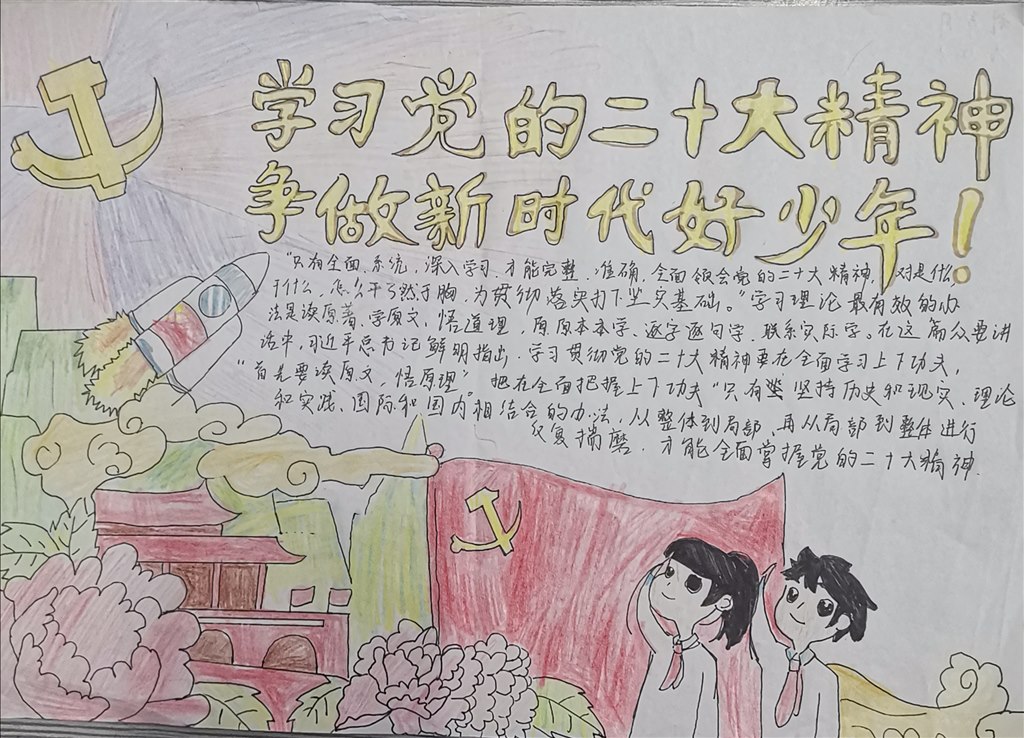 学习党的二十大精神
争做新时代好少年!
"只有全面、系统、深入学习,才能完整、准确、全面领会党的二十大精神,对是什么
干什么、怎么干了然于胸,为贯彻落实打下坚实基础。"学习理论最有效的办
法是读原著、学原文、悟道理,原原本本学、逐字逐句学、联系实际学。在这篇众要讲
话中,习近平总书记鲜明指出,学习贯彻党的二十大精神要在全面学习上下功夫,
"首先要读原文,悟原理"。把在全面把握上下功夫"只有坚持历史和现实、理论
和实践、国际和国内相结合的办法,从整体到局部、再从局部到整体进行
反复揣磨,才能全面掌握党的二十大精神.